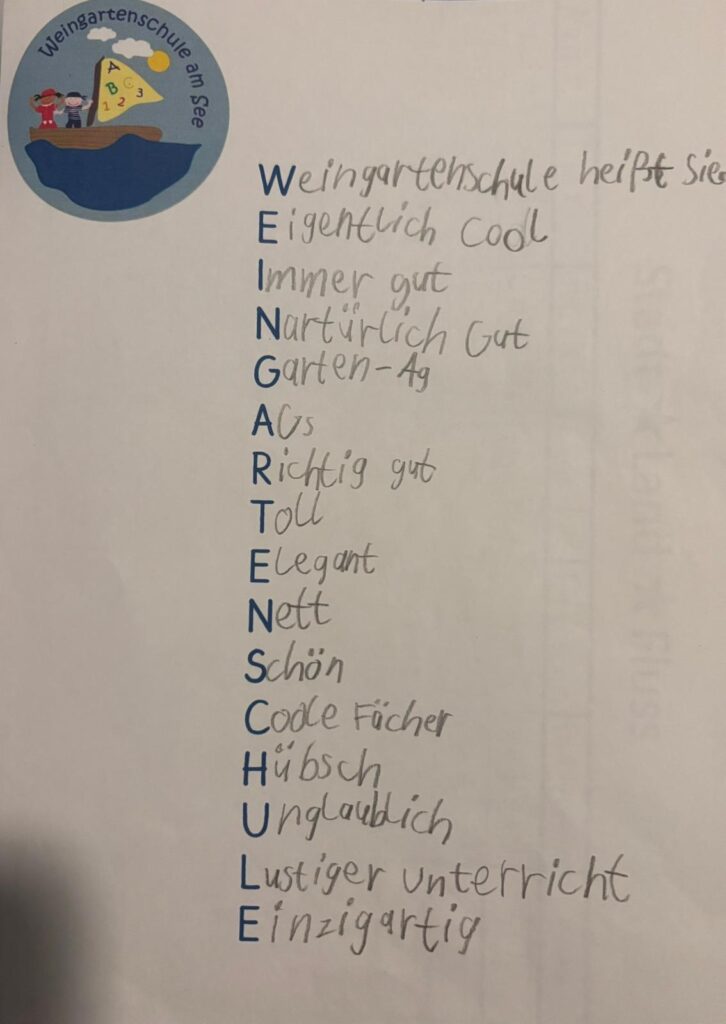 Weingartenschule am See
A
B C
1 2 3
Weingartenschule heißt Sie
Eigentlich Cool
Immer gut
Nartürlich Gut
Garten-Ag
AGs
Richtig gut
Toll
Elegant
Nett
Schön
Coole Fächer
Hübsch
Unglaublich
Lustiger unterricht
Einzigartig